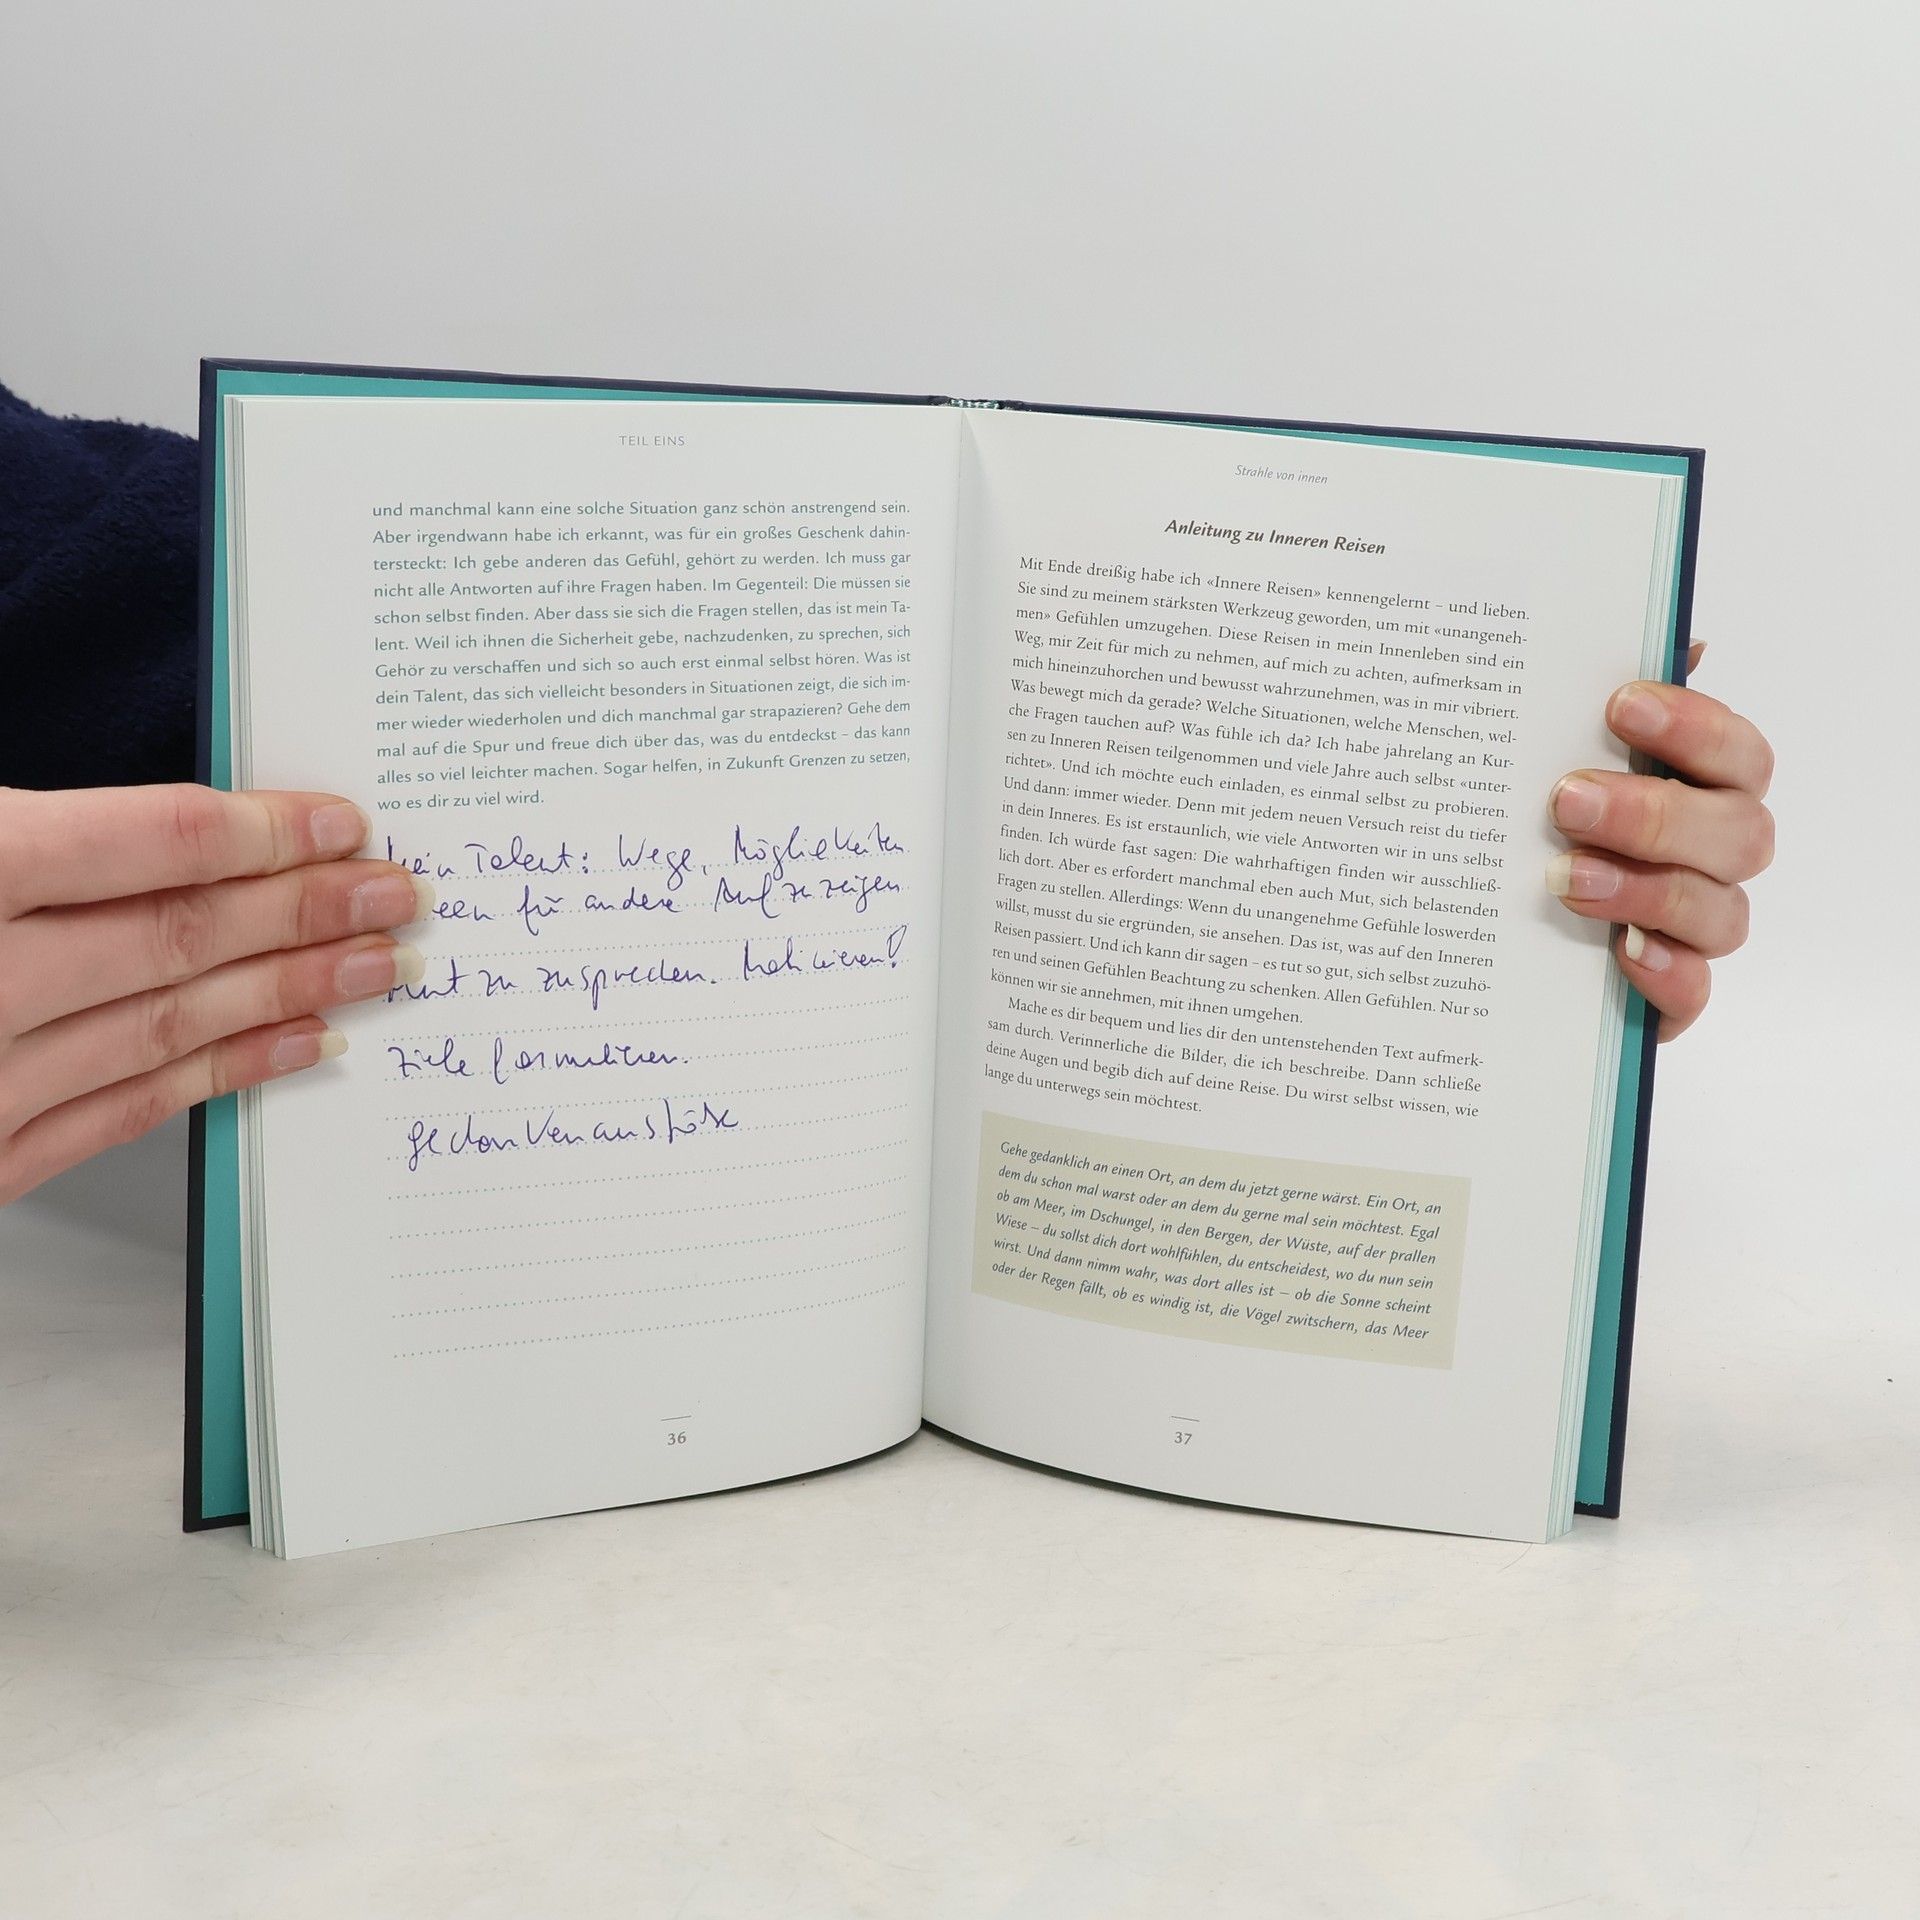 TEIL EINS
und manchmal kann eine solche Situation ganz schön anstrengend sein.
Aber irgendwann habe ich erkannt, was für ein großes Geschenk dahin-
tersteckt: Ich gebe anderen das Gefühl, gehört zu werden. Ich muss gar
nicht alle Antworten auf ihre Fragen haben. Im Gegenteil: Die müssen sie
schon selbst finden. Aber dass sie sich die Fragen stellen, das ist mein Ta-
lent. Weil ich ihnen die Sicherheit gebe, nachzudenken, zu sprechen, sich
Gehör zu verschaffen und sich so auch erst einmal selbst hören. Was ist
dein Talent, das sich vielleicht besonders in Situationen zeigt, die sich im-
mer wieder wiederholen und dich manchmal gar strapazieren? Gehe dem
mal auf die Spur und freue dich über das, was du entdeckst – das kann
alles so viel leichter machen. Sogar helfen, in Zukunft Grenzen zu setzen,
wo es dir zu viel wird.
Mein Talent: Wege, Möglichkeiten
für andere Aufzuzeigen
Mut zu zusprechen. Motivieren!
Ziele formulieren.
Gedankenanstöße
36
Strahle von innen
Anleitung zu Inneren Reisen
Mit Ende dreißig habe ich «Innere Reisen» kennengelernt – und lieben.
Sie sind zu meinem stärksten Werkzeug geworden, um mit «unangeneh-
men» Gefühlen umzugehen. Diese Reisen in mein Innenleben sind ein
Weg, mir Zeit für mich zu nehmen, auf mich zu achten, aufmerksam in
mich hineinzuhorchen und bewusst wahrzunehmen, was in mir vibriert.
Was bewegt mich da gerade? Welche Situationen, welche Menschen, wel-
che Fragen tauchen auf? Was fühle ich da? Ich habe jahrelang an Kur-
sen zu Inneren Reisen teilgenommen und viele Jahre auch selbst «unter-
richtet». Und ich möchte euch einladen, es einmal selbst zu probieren.
Und dann: immer wieder. Denn mit jedem neuen Versuch reist du tiefer
in dein Inneres. Es ist erstaunlich, wie viele Antworten wir in uns selbst
finden. Ich würde fast sagen: Die wahrhaftigen finden wir ausschließ-
lich dort. Aber es erfordert manchmal eben auch Mut, sich belastenden
Fragen zu stellen. Allerdings: Wenn du unangenehme Gefühle loswerden
willst, musst du sie ergründen, sie ansehen. Das ist, was auf den Inneren
Reisen passiert. Und ich kann dir sagen – es tut so gut, sich selbst zuzuhö-
ren und seinen Gefühlen Beachtung zu schenken. Allen Gefühlen. Nur so
können wir sie annehmen, mit ihnen umgehen.
Mache es dir bequem und lies dir den untenstehenden Text aufmerk-
sam durch. Verinnerliche die Bilder, die ich beschreibe. Dann schließe
deine Augen und begib dich auf deine Reise. Du wirst selbst wissen, wie
lange du unterwegs sein möchtest.
Gehe gedanklich an einen Ort, an dem du jetzt gerne wärst. Ein Ort, an
dem du schon mal warst oder an dem du gerne mal sein möchtest. Egal
ob am Meer, im Dschungel, in den Bergen, der Wüste, auf der prallen
Wiese – du sollst dich dort wohlfühlen, du entscheidest, wo du nun sein
wirst. Und dann nimm wahr, was dort alles ist – ob die Sonne scheint
oder der Regen fällt, ob es windig ist, die Vögel zwitschern, das Meer
37